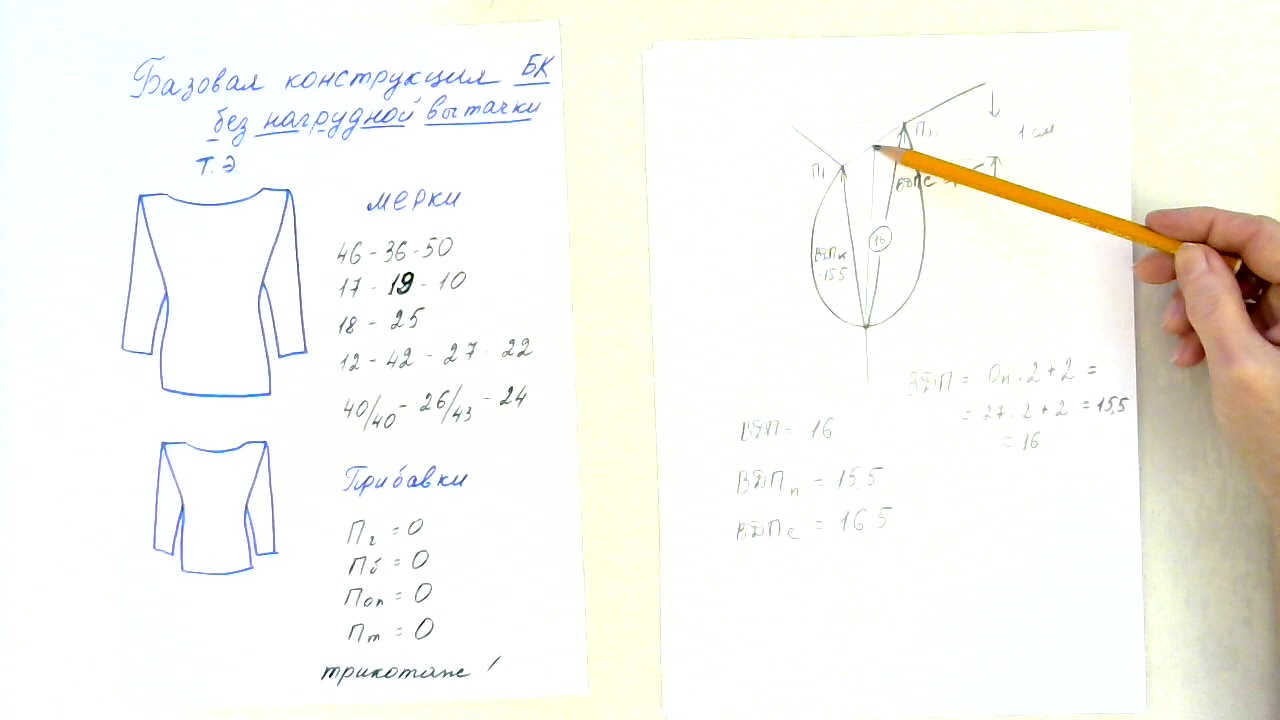 Базовая конструкция БК
без нагрудной вытачки
Т. Э
мерки
46 - 36 - 50
17 - 19 - 10
18 - 25
12 - 42 - 27 - 22
40/40 - 26/43 - 24
Прибавки
Пг = 0
Пб = 0
Поп = 0
Пт = 0
трикотаж !
П1
П2
1 см
ВДПс =
16
ВДПп
15,5
ВДП = Оп · 2 + 2 =
= 27 · 2 + 2 = 15,5
= 16
ВДП = 16
ВДПп = 15,5
ВДПс = 16 5